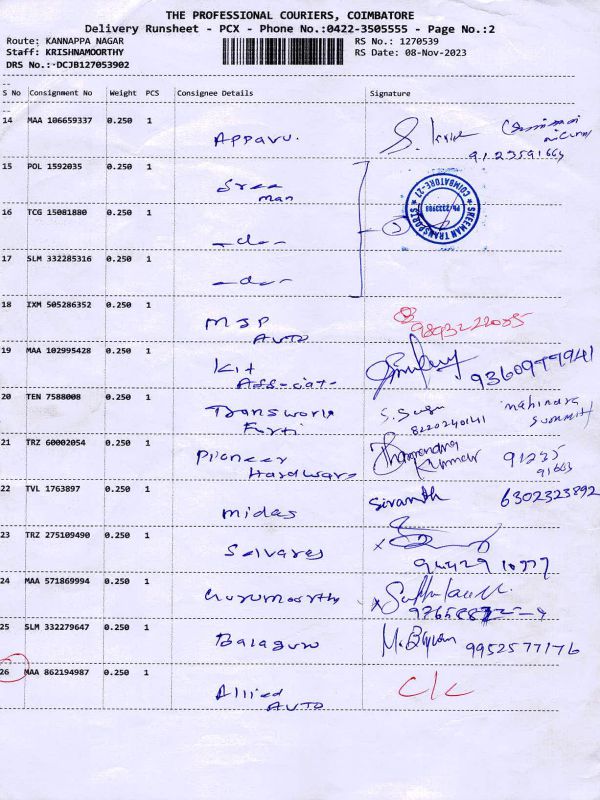 THE PROFESSIONAL COURIERS, COIMBATORE
Delivery Runsheet - PCX - Phone No.:0422-3505555 - Page No.:2
Route: KANNAPPA NAGAR
RS No.: 1270539
Staff: KRISHNAMOORTHY
RS Date: 08-Nov-2023
DRS No.:-DCJB127053902
S No Consignment No Weight PCS Consignee Details Signature
14 MAA 106659337 0.250 1
Appavu.
15 POL 1592035 0.250 1
Sree man
16 TCG 15081880 0.250 1
-do-
17 SLM 332285316 0.250 1
-do-
SREEMAN TRANSPORT
COIMBATORE-27
18 IXM 505286352 0.250 1
MSP AUTO
19 MAA 102995428 0.250 1
Kit
9360977941
20 TEN 7588008 0.250 1
Transworld
S.
8220240141
mahindra summit
21 TRZ 60002054 0.250 1
Pioneer Hardware
Kumar
91235
91663
22 TVL 1763897 0.250 1
midas
Sivanth 6302323892
23 TRZ 275109490 0.250 1
Selvaraj
24 MAA 571869994 0.250 1
Gurumoorthy
25 SLM 332279647 0.250 1
Balaguru
9952577176
26 MAA 862194987 0.250 1
Allied AUTO
C/C